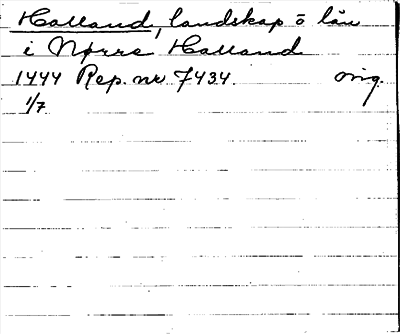 Halland, landskap o län
i Nørre Halland
1444 Rep. nr 7434. orig.
1/7